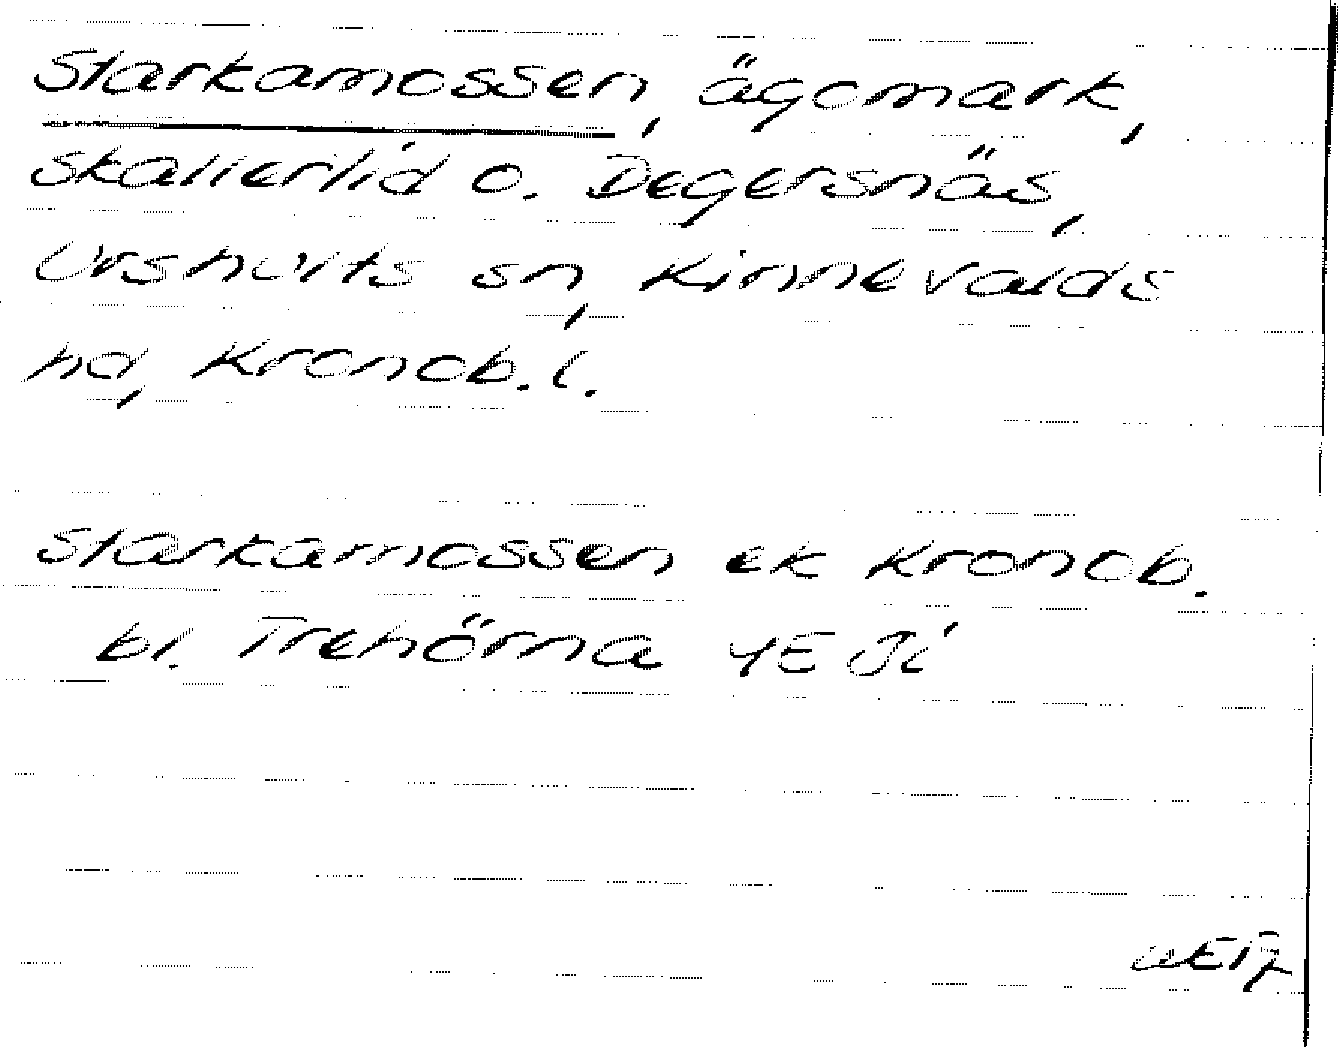 Starkamossen, ägomark,
Skallerlid o. Degersnäs,
Urshults sn, Kinnevalds
hd, Kronob. l.
Starkamossen ek Kronob.
bl. Trehörna 4E